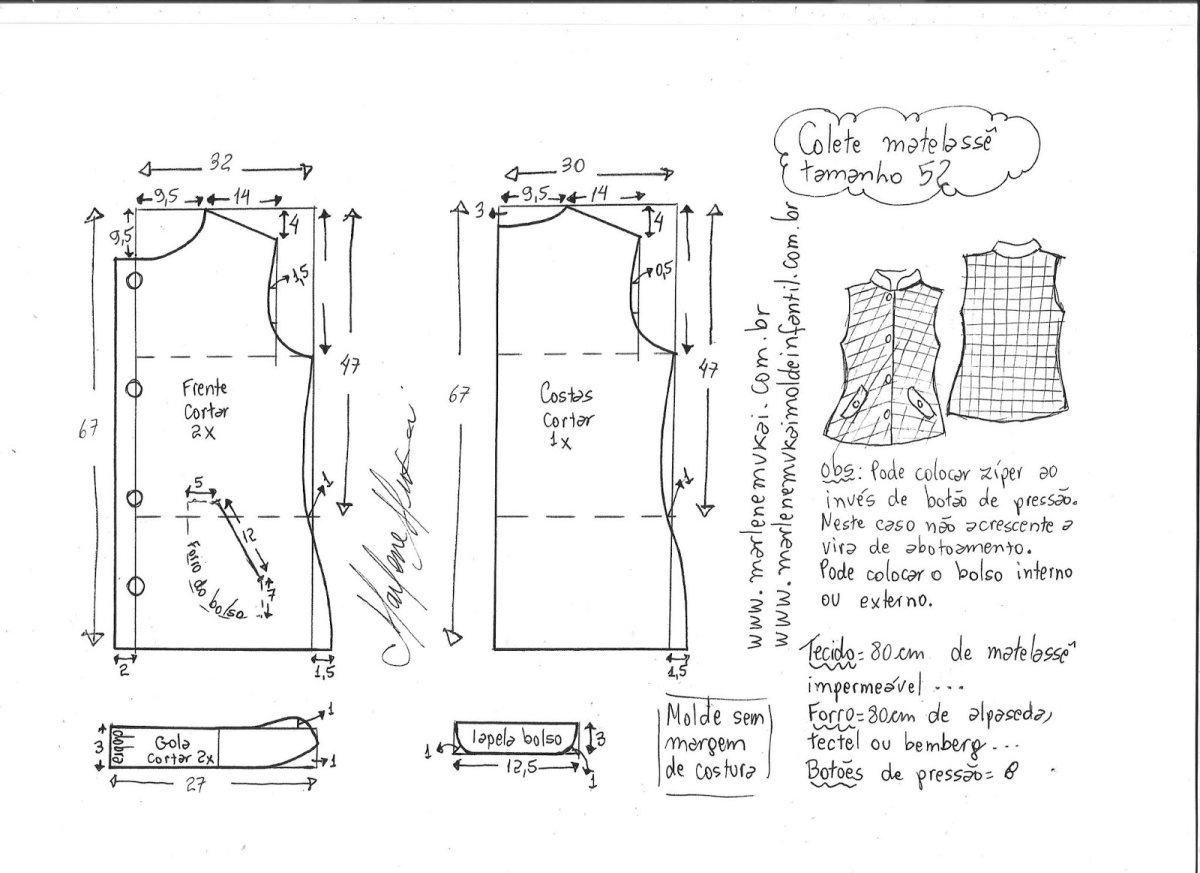 Colete matelassê
tamanho 52
32
9,5
14
9,5
4
1,5
67
47
Frente
Cortar
2x
5
12
7
Forro do bolso
1
2
1,5
30
9,5
14
3
4
0,5
67
47
Costas
Cortar
1x
1
1,5
Marlene Mukai
www.marlenemukai.com.br
www.marlenemukaimoldeinfantil.com.br
Obs: Pode colocar zíper ao
invés de botão de pressão.
Neste caso não acrescente a
vira de abotoamento.
Pode colocar o bolso interno
ou externo.
Tecido = 80cm de matelassê
impermeável ...
Forro = 80cm de alpaseda,
tectel ou bemberg...
Botões de pressão = 8
3
dobra
Gola
cortar 2x
1
1
27
lapela bolso
1
3
12,5
1
Molde sem
margem
de costura